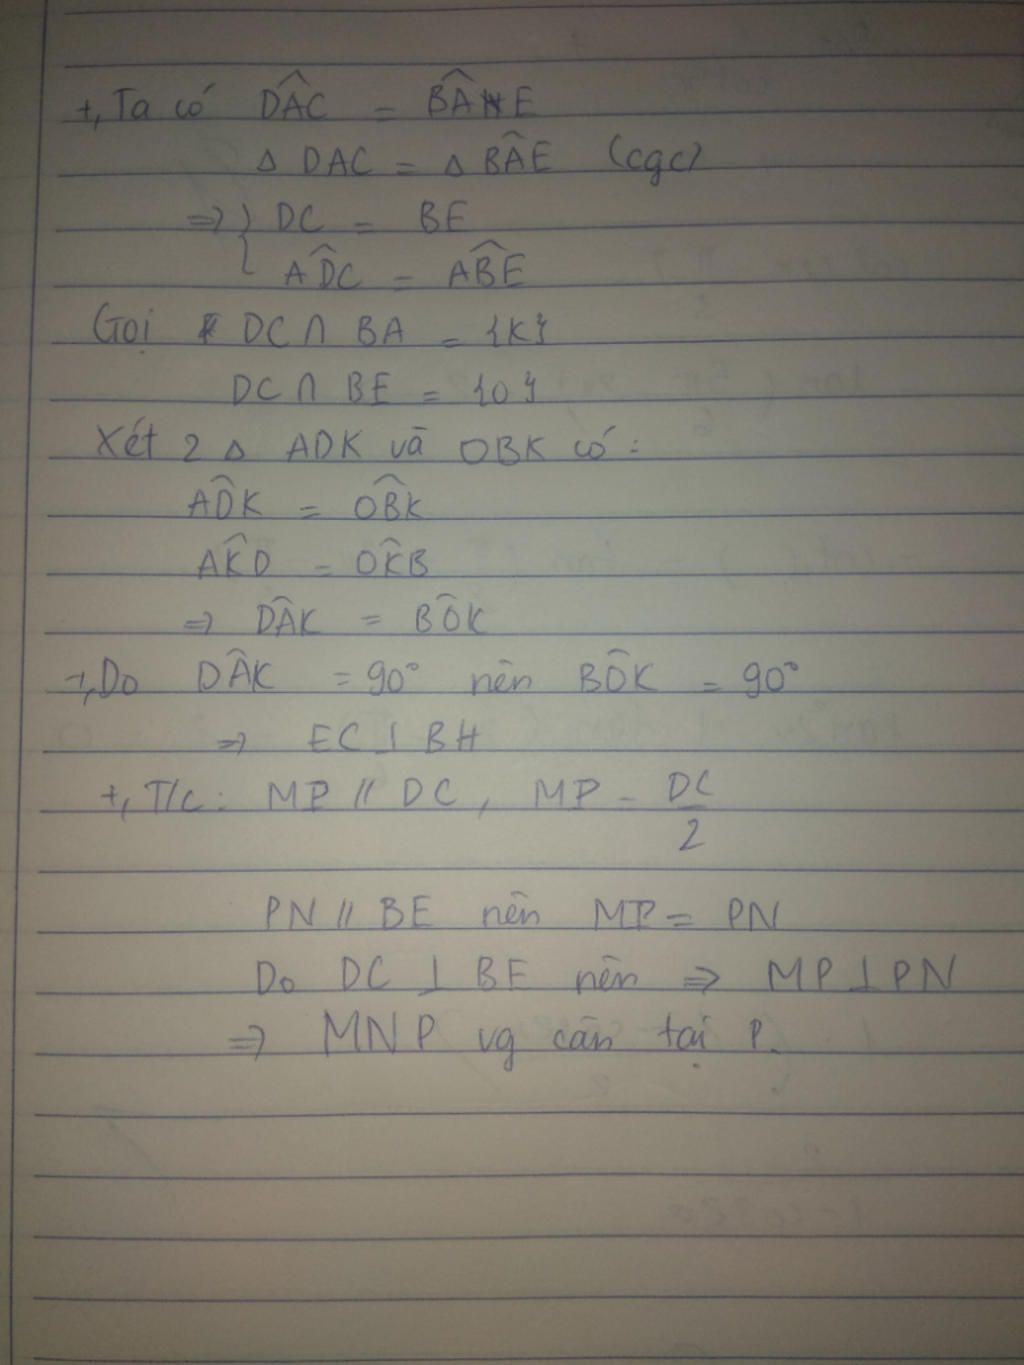 +, Ta có DÂC = BÂE
Δ DAC = Δ BÂE (cgc)
=> { DC = BE
AD̂C = AB̂E
Gọi DC ∩ BA = {K}
DC ∩ BE = {O}
Xét 2 Δ ADK và OBK có:
AD̂K = OB̂K
AK̂D = OK̂B
=> DÂK = BÔK
+, Do DÂK = 90° nên BÔK = 90°
=> EC ⊥ BH
+, T/c: MP // DC, MP = DC/2
PN // BE nên MP = PN
Do DC ⊥ BE nên => MP ⊥ PN
=> MNP vg cân tại P.